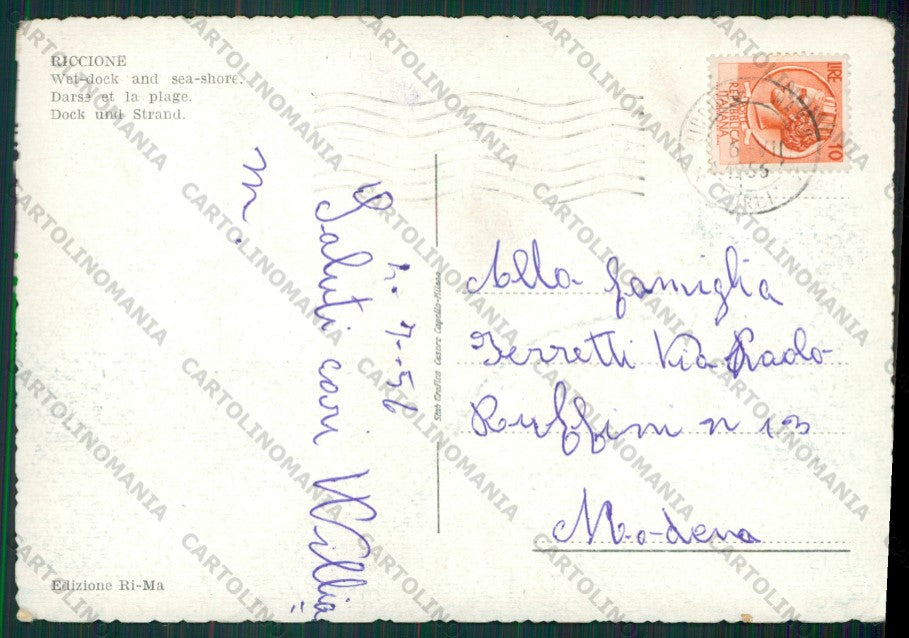 RICCIONE
Wet-dock and sea-shore.
Darse et la plage.
Dock und Strand.
LIRE 10
REPUBBLICA
ITALIANA
4-7-56
Saluti cari Willia
m.
Alla famiglia
Ferretti Via Paolo
Ruffini n 13
Modena
Stab Grafico Cesare Capello-Milano
Edizione Ri-Ma
CARTOLINOMANIA